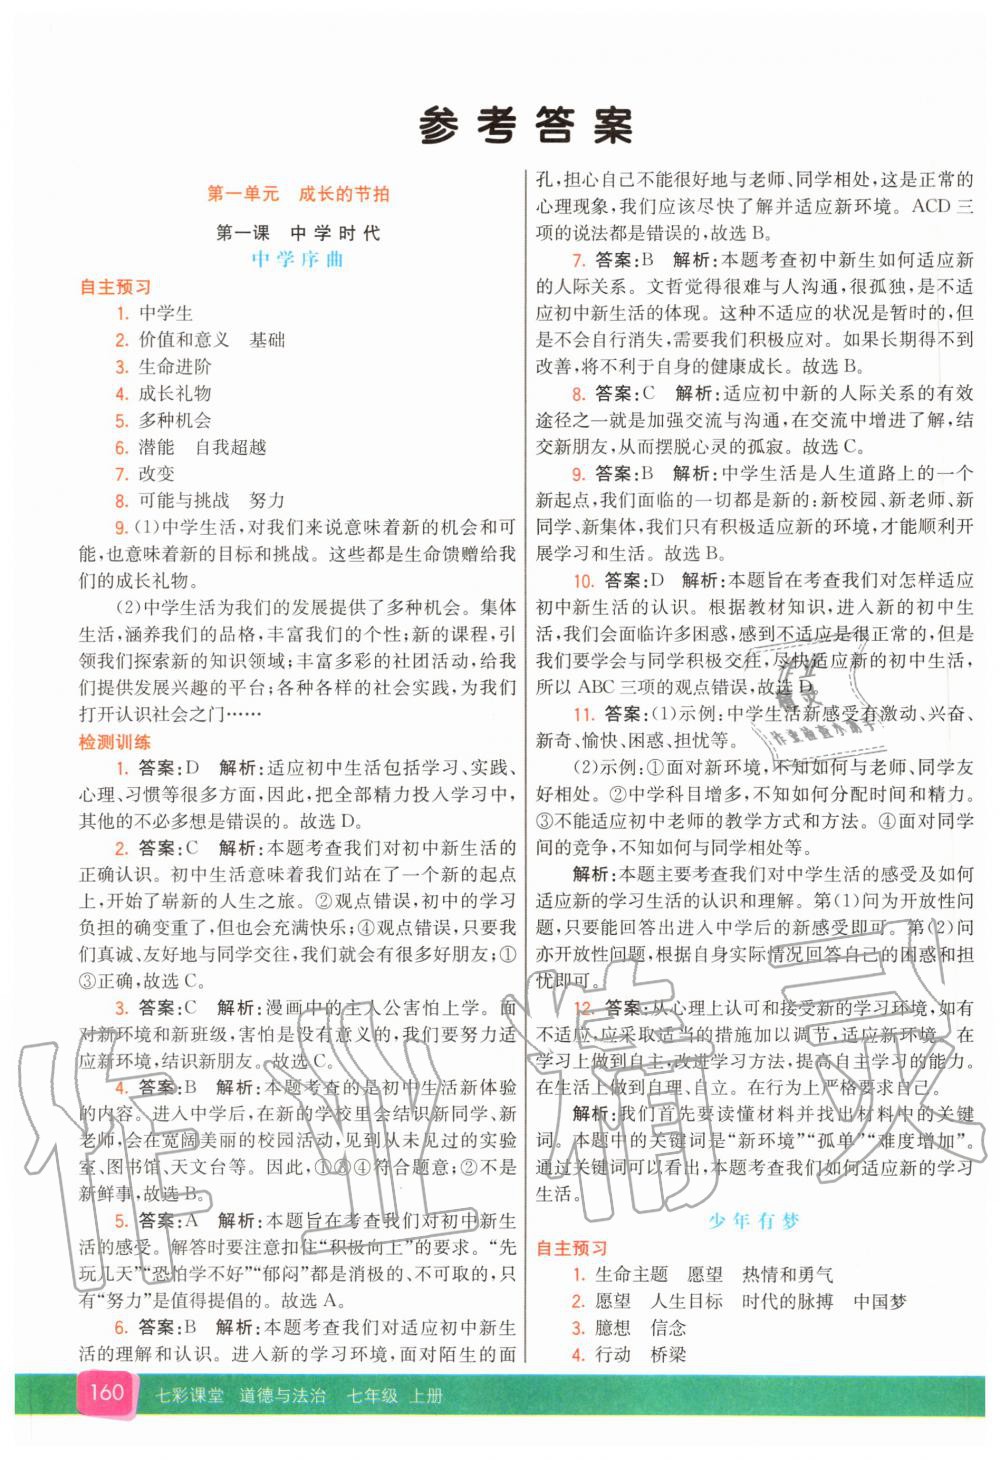 参考答案
第一单元 成长的节拍
第一课 中学时代
中学序曲
自主预习
1. 中学生
2. 价值和意义 基础
3. 生命进阶
4. 成长礼物
5. 多种机会
6. 潜能 自我超越
7. 改变
8. 可能与挑战 努力
9. (1)中学生活,对我们来说意味着新的机会和可
能,也意味着新的目标和挑战。这些都是生命馈赠给我
们的成长礼物。
(2)中学生活为我们的发展提供了多种机会。集体
生活,涵养我们的品格,丰富我们的个性;新的课程,引
领我们探索新的知识领域;丰富多彩的社团活动,给我
们提供发展兴趣的平台;各种各样的社会实践,为我们
打开认识社会之门……
检测训练
1. 答案:D 解析:适应初中生活包括学习、实践、
心理、习惯等很多方面,因此,把全部精力投入学习中,
其他的不必多想是错误的。故选D。
2. 答案:C 解析:本题考查我们对初中新生活的
正确认识。初中生活意味着我们站在了一个新的起点
上,开始了崭新的人生之旅。②观点错误,初中的学习
负担的确变重了,但也会充满快乐;④观点错误,只要我
们真诚、友好地与同学交往,我们就会有很多好朋友;①
③正确,故选C。
3. 答案:C 解析:漫画中的主人公害怕上学。面
对新环境和新班级,害怕是没有意义的,我们要努力适
应新环境,结识新朋友。故选C。
4. 答案:B 解析:本题考查的是初中生活新体验
的内容。进入中学后,在新的学校里会结识新同学、新
老师,会在宽阔美丽的校园活动,见到从未见过的实验
室、图书馆、天文台等。因此,①③④符合题意;②不是
新鲜事,故选B。
5. 答案:A 解析:本题旨在考查我们对初中新生
活的感受。解答时要注意扣住“积极向上”的要求。“先
玩几天”“恐怕学不好”“郁闷”都是消极的、不可取的,只
有“努力”是值得提倡的。故选A。
6. 答案:B 解析:本题考查我们对适应初中新生
活的理解和认识。进入新的学习环境,面对陌生的面
孔,担心自己不能很好地与老师、同学相处,这是正常的
心理现象,我们应该尽快了解并适应新环境。ACD三
项的说法都是错误的,故选B。
7. 答案:B 解析:本题考查初中新生如何适应新
的人际关系。文哲觉得很难与人沟通,很孤独,是不适
应初中新生活的体现。这种不适应的状况是暂时的,但
是不会自行消失,需要我们积极应对。如果长期得不到
改善,将不利于自身的健康成长。故选B。
8. 答案:C 解析:适应初中新的人际关系的有效
途径之一就是加强交流与沟通,在交流中增进了解,结
交新朋友,从而摆脱心灵的孤寂。故选C。
9. 答案:B 解析:中学生活是人生道路上的一个
新起点,我们面临的一切都是新的:新校园、新老师、新
同学、新集体,我们只有积极适应新的环境,才能顺利开
展学习和生活。故选B。
10. 答案:D 解析:本题旨在考查我们对怎样适应
初中新生活的认识。根据教材知识,进入新的初中生
活,我们会面临许多困惑,感到不适应是很正常的,但是
我们要学会与同学积极交往,尽快适应新的初中生活。
所以ABC三项的观点错误,故选D。
11. 答案:(1)示例:中学生活新感受有激动、兴奋、
新奇、愉快、困惑、担忧等。
(2)示例:①面对新环境,不知如何与老师、同学友
好相处。②中学科目增多,不知如何分配时间和精力。
③不能适应初中老师的教学方式和方法。④面对同学
间的竞争,不知如何与同学相处等。
解析:本题主要考查我们对中学生活的感受及如何
适应新的学习生活的认识和理解。第(1)问为开放性问
题,只要能回答出进入中学后的新感受即可。第(2)问
亦开放性问题,根据自身实际情况回答自己的困惑和担
忧即可。
12. 答案:从心理上认可和接受新的学习环境,如有
不适应,应采取适当的措施加以调节,适应新环境。在
学习上做到自主,改进学习方法,提高自主学习的能力。
在生活上做到自理、自立。在行为上严格要求自己。
解析:我们首先要读懂材料并找出材料中的关键
词。本题中的关键词是“新环境”“孤单”“难度增加”。
通过关键词可以看出,本题考查我们如何适应新的学习
生活。
少年有梦
自主预习
1. 生命主题 愿望 热情和勇气
2. 愿望 人生目标 时代的脉搏 中国梦
3. 臆想 信念
4. 行动 桥梁
160 七彩课堂 道德与法治 七年级 上册
作业精灵